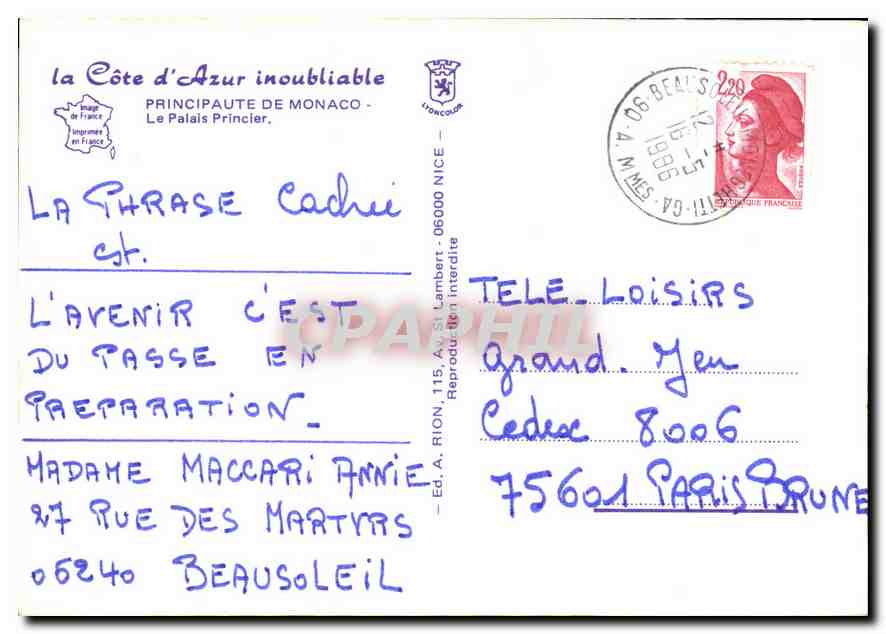 la Côte d'Azur inoubliable
Image
de France
Imprimée
en France
PRINCIPAUTE DE MONACO -
Le Palais Princier.
LYONCOLOR
2,20
REPUBLIQUE FRANCAISE
12 H
16-5
1986
LA PHRASE Cachée
est.
L'AVENIR C'EST
DU PASSE EN
PREPARATION_
MADAME MACCARI ANNIE
27 RUE DES MARTYRS
06240 BEAUSOLEIL
- Ed. A. RION, 115, Av. St Lambert - 06000 NICE -
Reproduction interdite
TELE-LOISIRS
Grand. Jeu
Cedex 8006
75601 PARIS BRUNE
CPAPHIL